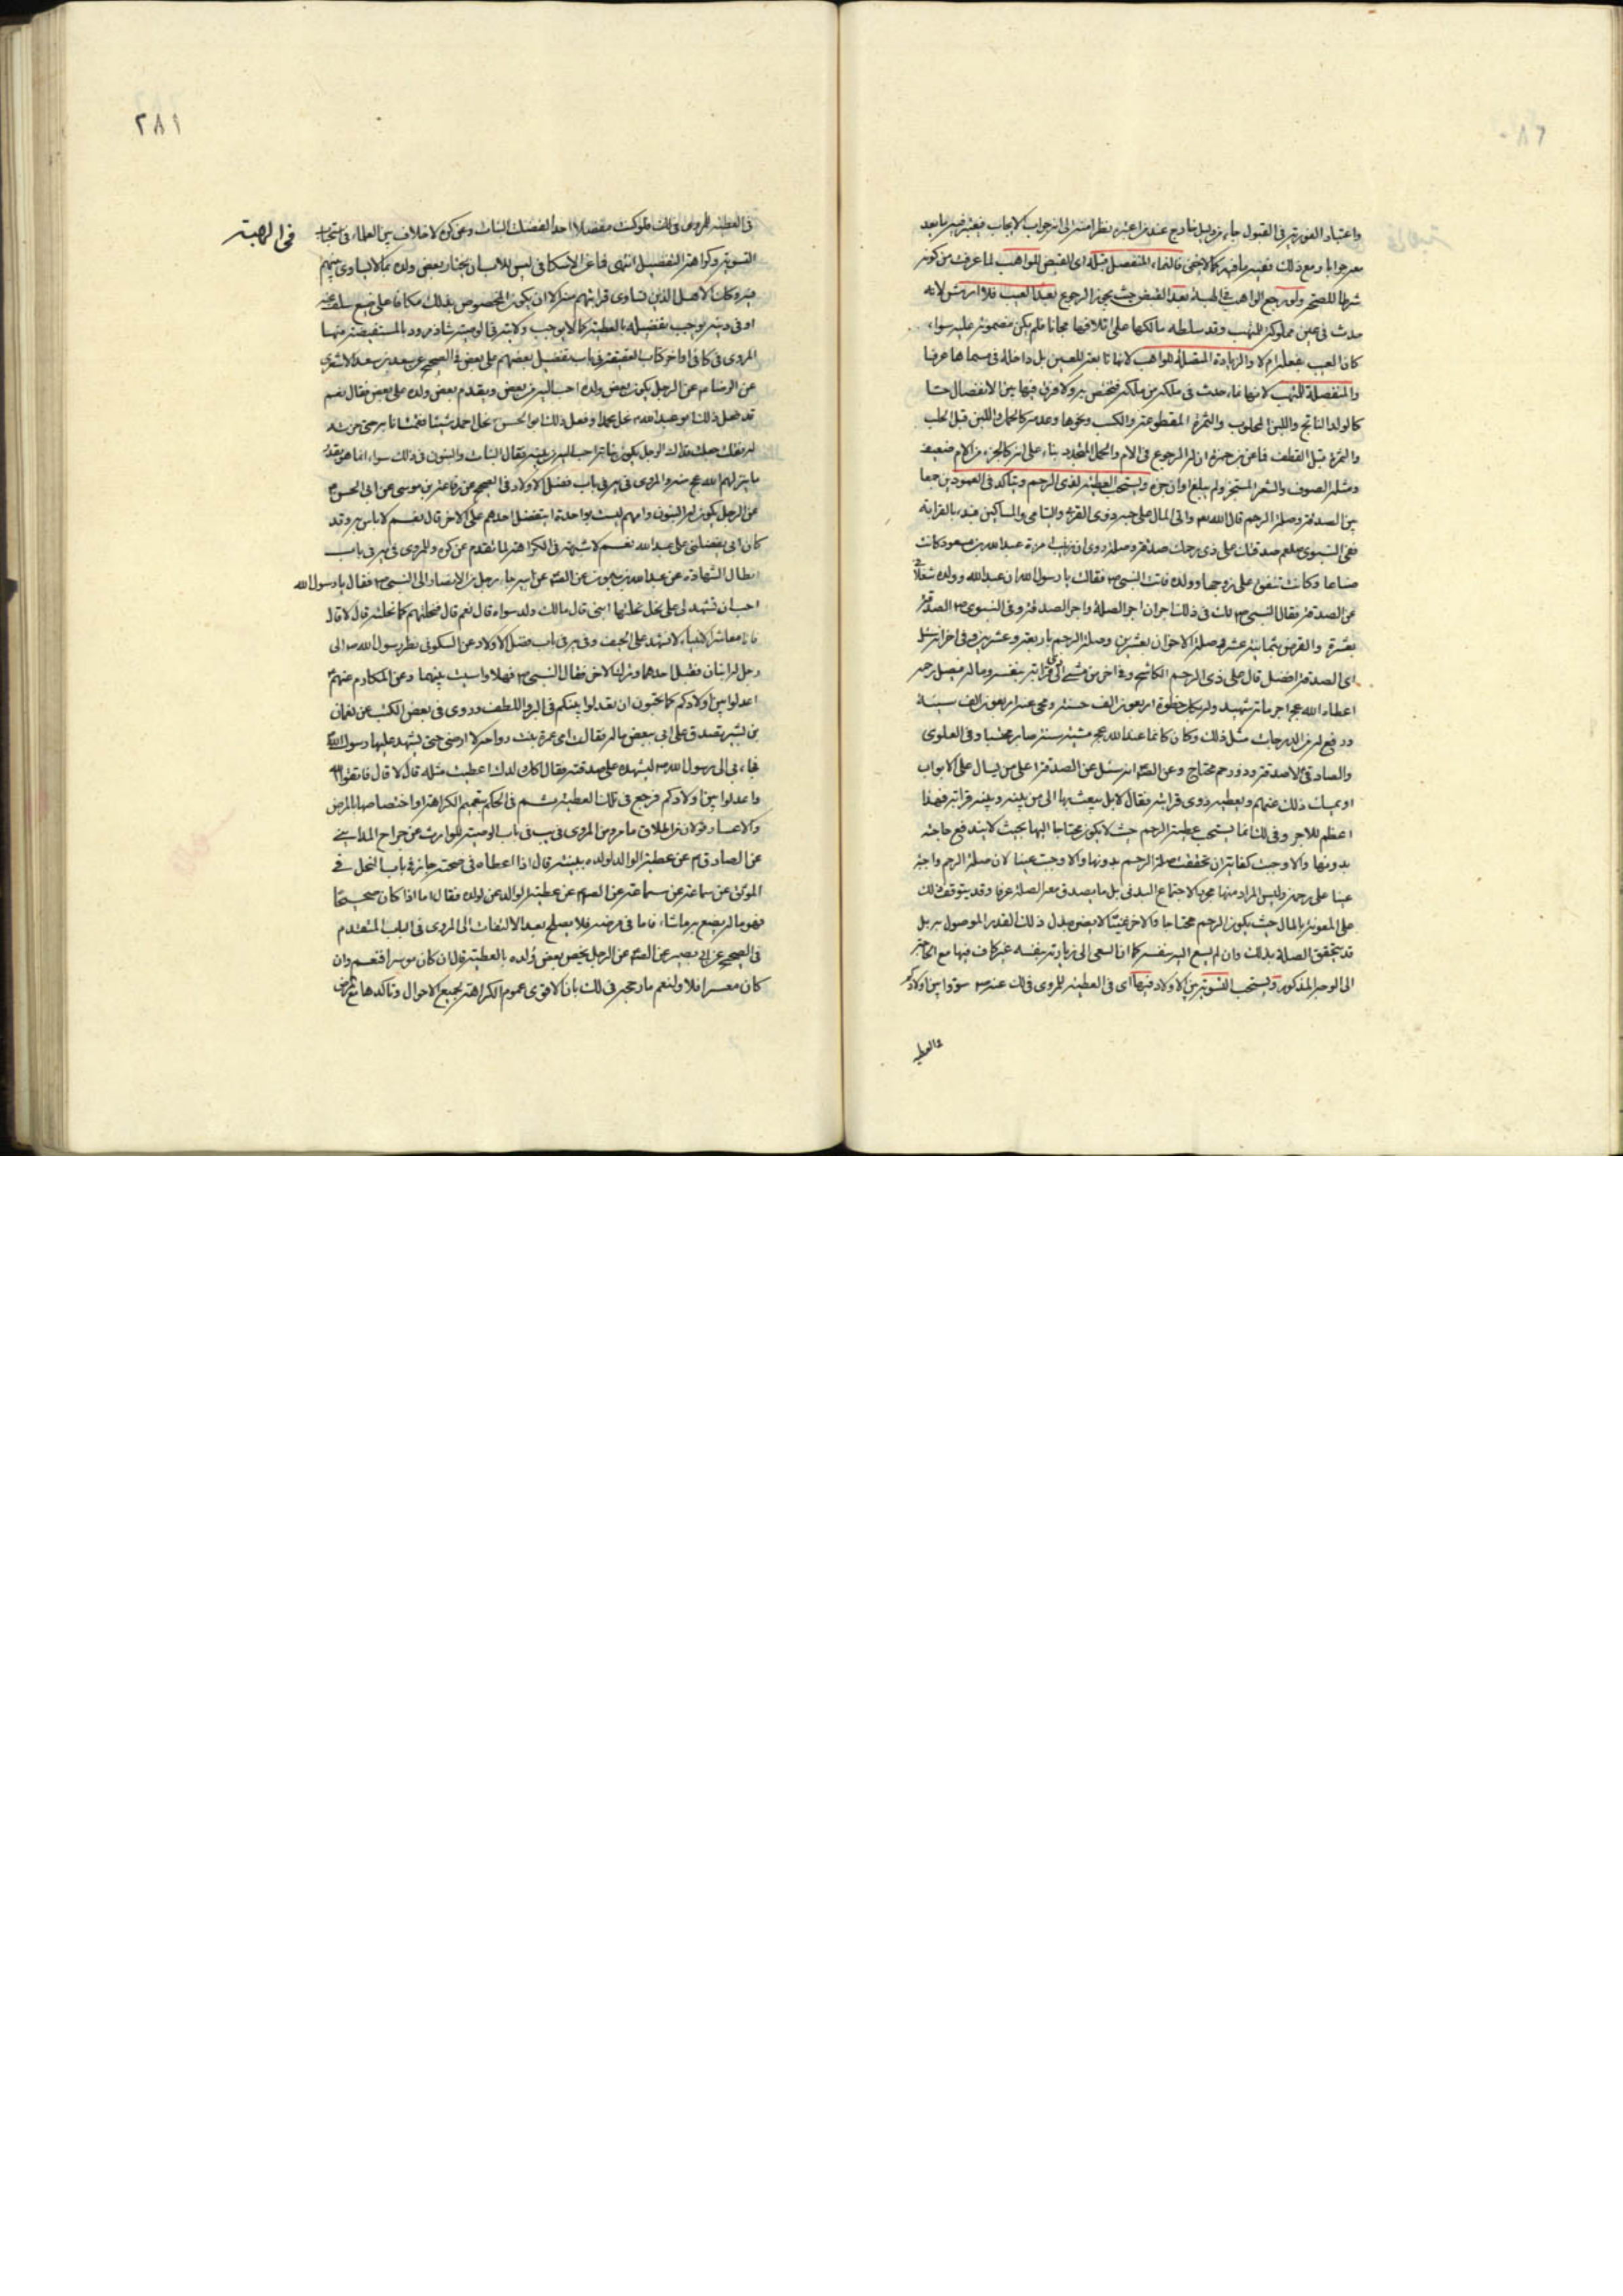 واعتبار الفورية في القبول
معه جوابا ومع ذلك ففيه ما فيه كما لا يخفى فالنماء المنفصل قبله اى القبض للواهب لما عرفت من كونه
شرطا للصحة ولو رجع الواهب في الهبة بعد القبض حيث يجوز الرجوع بعد العيب فلا ارش لانه
حدث في عين مملوكة للمتهب وقد سلطه مالكها على اتلافها مجانا فلم يكن مضمونة عليه سواء
كان العيب بفعله ام لا والزيادة المتصلة للواهب لانها تابعة للعين بل داخلة في مسماها عرفا
والمنفصلة للمتهب لانها نماء حدث في ملكه فيختص به ولا فرق فيها بين الانفصال حسا
كالولد الناتج واللبن المحلوب والثمرة المقطوعة والكسب ونحوها وعدمه كالحمل واللبن قبل الحلب
والثمرة قبل القطف فا عن بن حمزة ان له الرجوع في الام والحمل المتجدد بناء على انه كالجزء من الام ضعيف
ومثله الصوف والشعر المستجز ولم يبلغ اوان جزه ويستحب العطية لذي الرحم ويتاكد في العمودين جمعا
بين الصدقة وصلة الرحم قال الله واتى المال على حبه ذوى القربى واليتامى والمساكين فبدء بالقرابة
ففى النبوى صدقتك على ذى رحمك صدقة وصلة وروى ان زينب امرءة عبد الله بن مسعود كانت
صناعا وكانت تنفق على زوجها وولده فاتت النبى ص فقالت يا رسول الله ان عبد الله وولده شغلانى
عن الصدقة فقال النبى ص لك في ذلك اجران اجر الصلة واجر الصدقة وفى النبوى ص الصدقة
بعشرة والقرض بثمانية عشر وصلة الاخوان بعشرين وصلة الرحم باربعة وعشرين وفى اخر انه سئل
اى الصدقة افضل قال على ذى الرحم الكاشح وفى اخر من مشى الى ذى قرابة بنفسه وماله ليصل رحمه
اعطاه الله اجر مائة شهيد وله بكل خطوة اربعون الف حسنة ومحى عنه اربعون الف سيئة
ورفع له من الدرجات مثل ذلك وكان كانما عبد الله مئة سنة صابرا محتسبا وفى العلوى
والصادقى لا صدقة وذو رحم محتاج وعن الصم انه سئل عن الصدقة على من يسال على الابواب
او يمسك ذلك عنهم ويعطيه ذوى قرابته فقال لا بل يبعث بها الى من بينه وبينه قرابة فهذا
اعظم للاجر وفى لك انما يستحب عطية الرحم حيث لا يكون محتاجا اليها بحيث لا يندفع حاجته
بدونها والا وجبت كفاية ان تحققت صلة الرحم بدونها والا وجبت عينا لان صلة الرحم واجبة
عينا على رحمه وليس المراد منها مجرد الاجتماع البدنى بل ما يصدق معه الصلة عرفا وقد يتوقف ذلك
على المعونة بالمال حيث يكون الرحم محتاجا والاخر غنيا لا يضره بذل ذلك القدر الموصول به بل
قد يتحقق الصلة بذلك وان لم يسع اليه بنفسه كما ان السعى الى زيارته بنفسه غير كاف فيها مع الحاجة
الى الوجه المذكور ويستحب التسوية بين الاولاد فيها اى في العطية للمروى في لك عنه ص سووا بين اولادكم
في العطية
٢٨١
في الهبة
في العطية المروى في لك فلو كنت مفضلا احدا لفضلت البنات وعن كره لا خلاف بين العلماء في استحباب
التسوية وكراهة التفضيل انتهى فا عن الاسكافى ليس للاب ان يختار بعض ولده بما لا يساوى
غيره وكان لاهل الذين تساوى قرابتهم منه الا ان يكون المخصوص بذلك مكافا على صنيع سلف
او في وبر يوجب تفضيله بالعطية كما لا يوجب
المروى في كافى اواخر كتاب العقيقة في باب تفضيل بعضهم على بعض في الصحيح عن سعد بن سعد الاشعرى
عن الرضا م عن الرجل يكون بعض ولده احب اليه من بعض ويقدم بعض ولده على بعض فقال نعم
قد فعل ذلك ابو عبد الله نحل محمدا وفعل ذلك ابو الحسن نحل احمد شيئا فقمت انا به حتى حزته
له فقلت جعلت فداك الرجل يكون بناته احب اليه من بنيه فقال البنات والبنون في ذلك سواء انما هو بقدر
ما ينزلهم الله عج منه والمروى في باب فضل الاولاد في الصحيح عن رفاعة بن موسى عن ابى الحسن
عن الرجل يكون له البنون وامهم ليست بواحدة ايفضل احدهم على الاخر قال نعم لا باس به وقد
كان ابى يفضلنى على عبد الله نعم لا شبهة في الكراهة لما تقدم عن كره وللمروى في باب
ابطال الشهادة عن عبد الله بن ميمون عن الصم عن ابيه جاء رجل من الانصار الى النبى ص فقال يا رسول الله
احب ان تشهد لى على نحل نحلتها ابنى قال مالك ولد سواه قال نعم قال فنحلتهم كما نحلته قال لا قال
فانا معاشر الانبياء لا نشهد على الحيف وفى باب فضل الاولاد عن السكونى نظر رسول الله ص الى
رجل له ابنان فقبل احدهما وترك الاخر فقال النبى ص فهلا واسيت بينهما وعن المكارم عنهم
اعدلوا بين اولادكم كما تحبون ان يعدلوا بينكم في البر واللطف وروى في بعض الكتب عن نعمان
بن بشير تصدق على ابى ببعض ماله فقالت امى عمرة بنت رواحة لا ارضى حتى تشهد عليها رسول الله
فجاء بى الى رسول الله ص ليشهده على صدقته فقال اكل ولدك اعطيت مثله قال لا قال فاتقوا الله
واعدلوا بين اولادكم فرجع في تلك العطية ثم في الحكم بتعميم الكراهة او اختصاصها بالمرض
والاعسار قولان من اطلاق ما مر ومن المروى في باب الوصية للوارث عن جراح المداينى
عن الصادق م عن عطية الوالد لولده ببينة قال اذا اعطاه في صحته جاز في باب النحل في
الموثق عن سماعة عن الصم عن عطية الوالد عن لولده فقال اما اذا كان صحيحا
فهو ماله يصنع به ما شاء فاما في مرضه فلا يصلح بعد الالتفات الى المروى في الباب المتقدم
في الصحيح عن ابى بصير عن الصم عن الرجل يخص بعض ولده بالعطية قال ان كان موسرا فنعم وان
كان معسرا فلا ولنعم ما رجحه في لك بان الاقوى عموم الكراهة لجميع الاحوال وتاكدها مع المرض